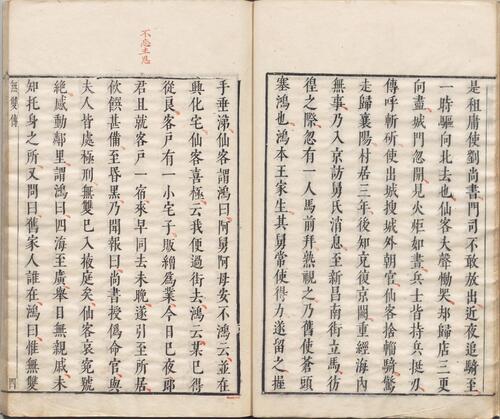 是租庸使劉尚書門司不敢放出近夜追騎至
一時驅向北去也仙客大聲慟哭却歸店三更
向盡城門忽開見火炬如晝兵士皆持兵挺刃
傳呼斬斫使出城搜城外朝官仙客捨輜騎驚
走歸襄陽村居三年後知克復京闕重經海內
無事乃入京訪舅氏消息至新昌南街立馬彷
徨之際忽有一人馬前拜熟視之乃舊使蒼頭
塞鴻也鴻本王家生其舅常使得力遂留之握
不忘主恩
手垂涕仙客謂鴻曰阿舅阿母安不鴻云並在
興化宅仙客喜極云我便過街去鴻云某已得
從良客戶有一小宅子販繒為業今日已夜郎
君且就客戶一宿來早同去未晚遂引至所居
飲饌甚備至昏黑乃聞報曰尚書授偽命官與
夫人皆處極刑無雙已入掖庭矣仙客哀寃號
絕感動鄰里謂鴻曰四海至廣舉目無親戚未
知托身之所又問曰舊家人誰在鴻曰惟無雙
無雙傳
四